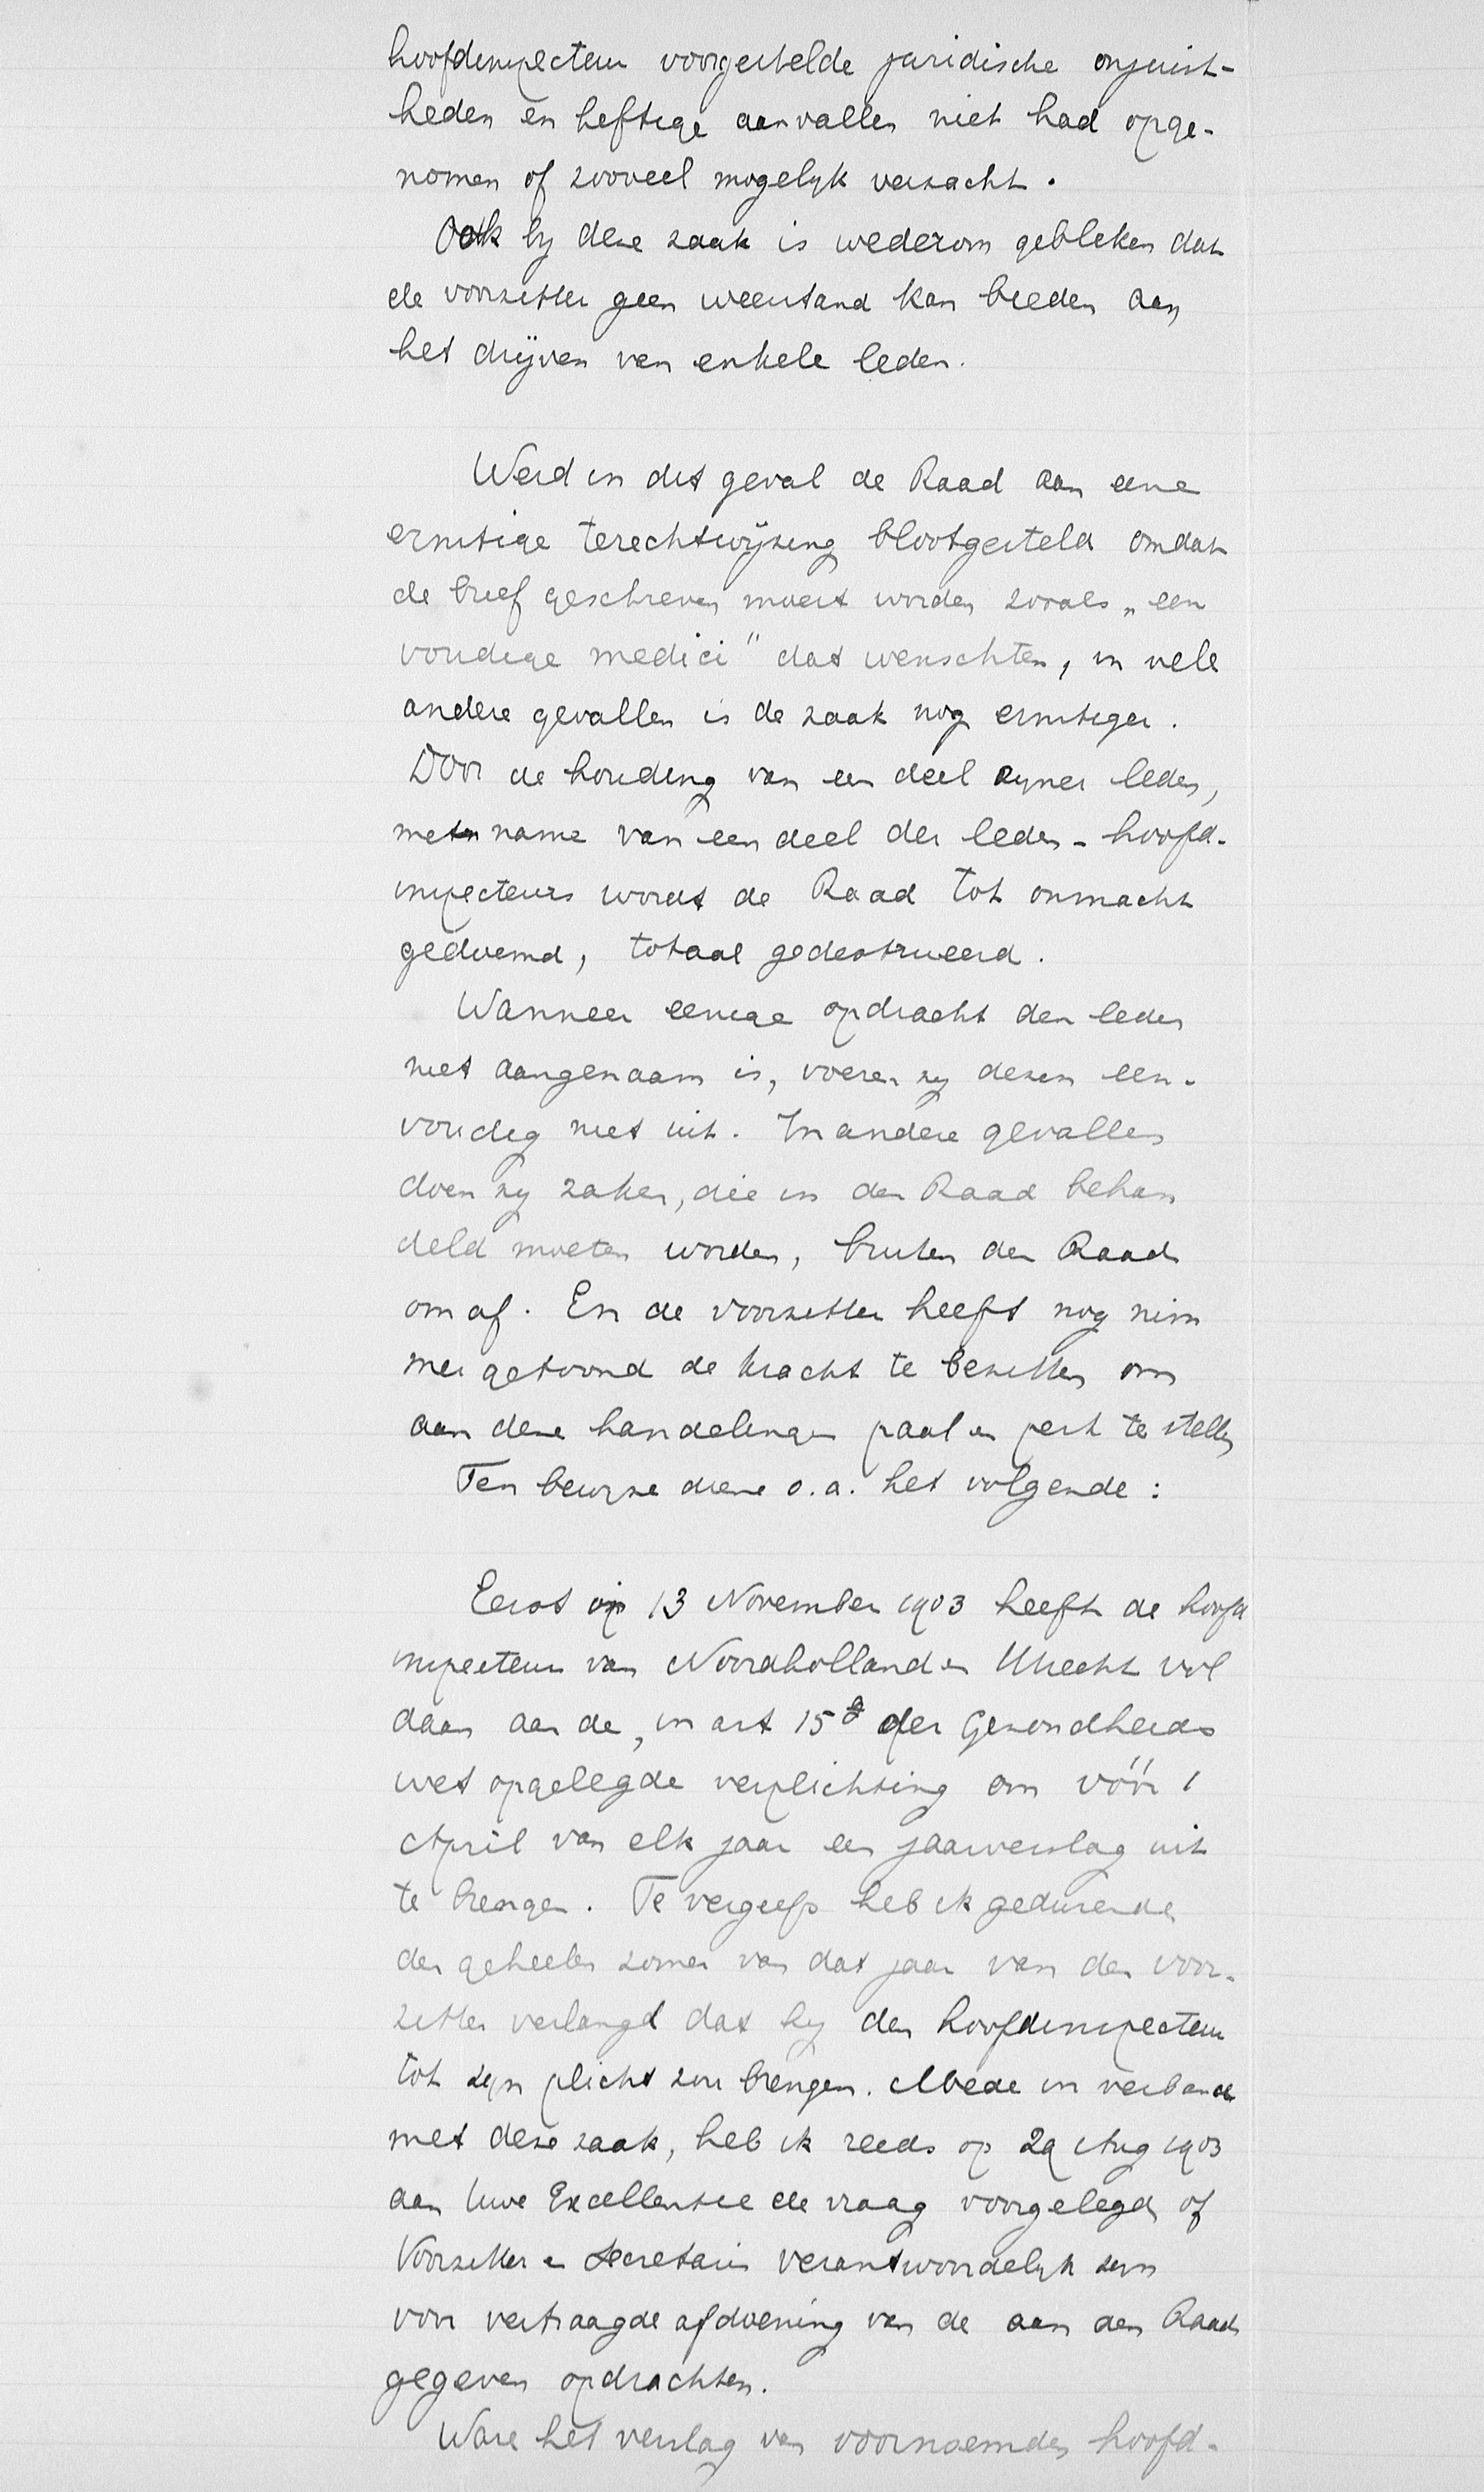 hoofdinspecteur voorgestelde juridische onjuist-
heden en heftige aanvallen niet had opge-
nomen of zooveel mogelijk verzacht.
Ook bij deze zaak is wederom gebleken dat
de voorzitter geen weerstand kan bieden aan
het drijven van enkele leden.
Werd in dit geval de Raad aan eene
ernstige terechtwijzing blootgesteld omdat
de brief geschreven moest worden zooals „een
voudige medici" dat wenschten, in vele
andere gevallen is de zaak nog ernstiger.
Door de houding van een deel zijner leden,
met name van een deel der leden-hoofd-
inspecteurs wordt de Raad tot onmacht
gedoemd, totaal gedestrueerd.
Wanneer eenige opdracht den leden
niet aangenaam is, voeren zij dezen een-
voudig niet uit. In andere gevallen
doen zij zaken, die in den Raad behan
deld moeten worden, buiten den Raad
om af. En de voorzitter heeft nog nim
mer getoond de kracht te bezitten om
aan deze handelingen paal en perk te stellen
Ten bewijze diene o.a. het volgende:
Eerst op 13 November 1903 heeft de hoofd
inspecteur van Noordholland en Utrecht vol
daan aan de, in art 15 der Gezondheids
wet opgelegde verplichting om vóór 1
April van elk jaar een jaarverslag uit
te brengen. Te vergeefs heb ik gedurende
den geheelen zomer van dat jaar van den voor-
zitter verlangd dat hij den hoofdinspecteur
tot zijn plicht zou brengen. Mede in verband
met deze zaak, heb ik reeds op 29 Aug 1903
aan Uwe Excellentie de vraag voorgelegd of
Voorzitter en Secretaris verantwoordelijk zijn
voor vertraagde afdoening van de aan den Raad
gegeven opdrachten.
Ware het verslag van voornoemden hoofd-